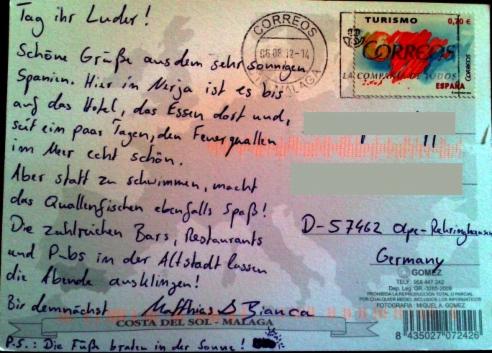 Tag ihr Luder!
Schöne Grüße aus dem sehr sonnigen
Spanien. Hier in Nerja ist es bis
auf das Hotel, das Essen dort und,
seit ein paar Tagen, den Feuerquallen
im Meer echt schön.
Aber statt zu schwimmen, macht
das Quallenfischen ebenfalls Spaß!
Die zahlreichen Bars, Restaurants
und Pubs in der Altstadt lassen
die Abende ausklingen!
Bis demnächst Matthias & Bianca
COSTA DEL SOL - MALAGA
P.S.: Die Füße braten in der Sonne!
CORREOS
MALAGA
TURISMO
0,70 €
CORREOS
LA COMPAÑIA DE TODOS
ESPAÑA
CORREOS
D-57462 Olpe-Rehringhausen
Germany
GOMEZ
PROHIBIDA LA REPRODUCCION TOTAL O PARCIAL
FOTOGRAFIA: MIGUEL A. GOMEZ
8 435027 072426